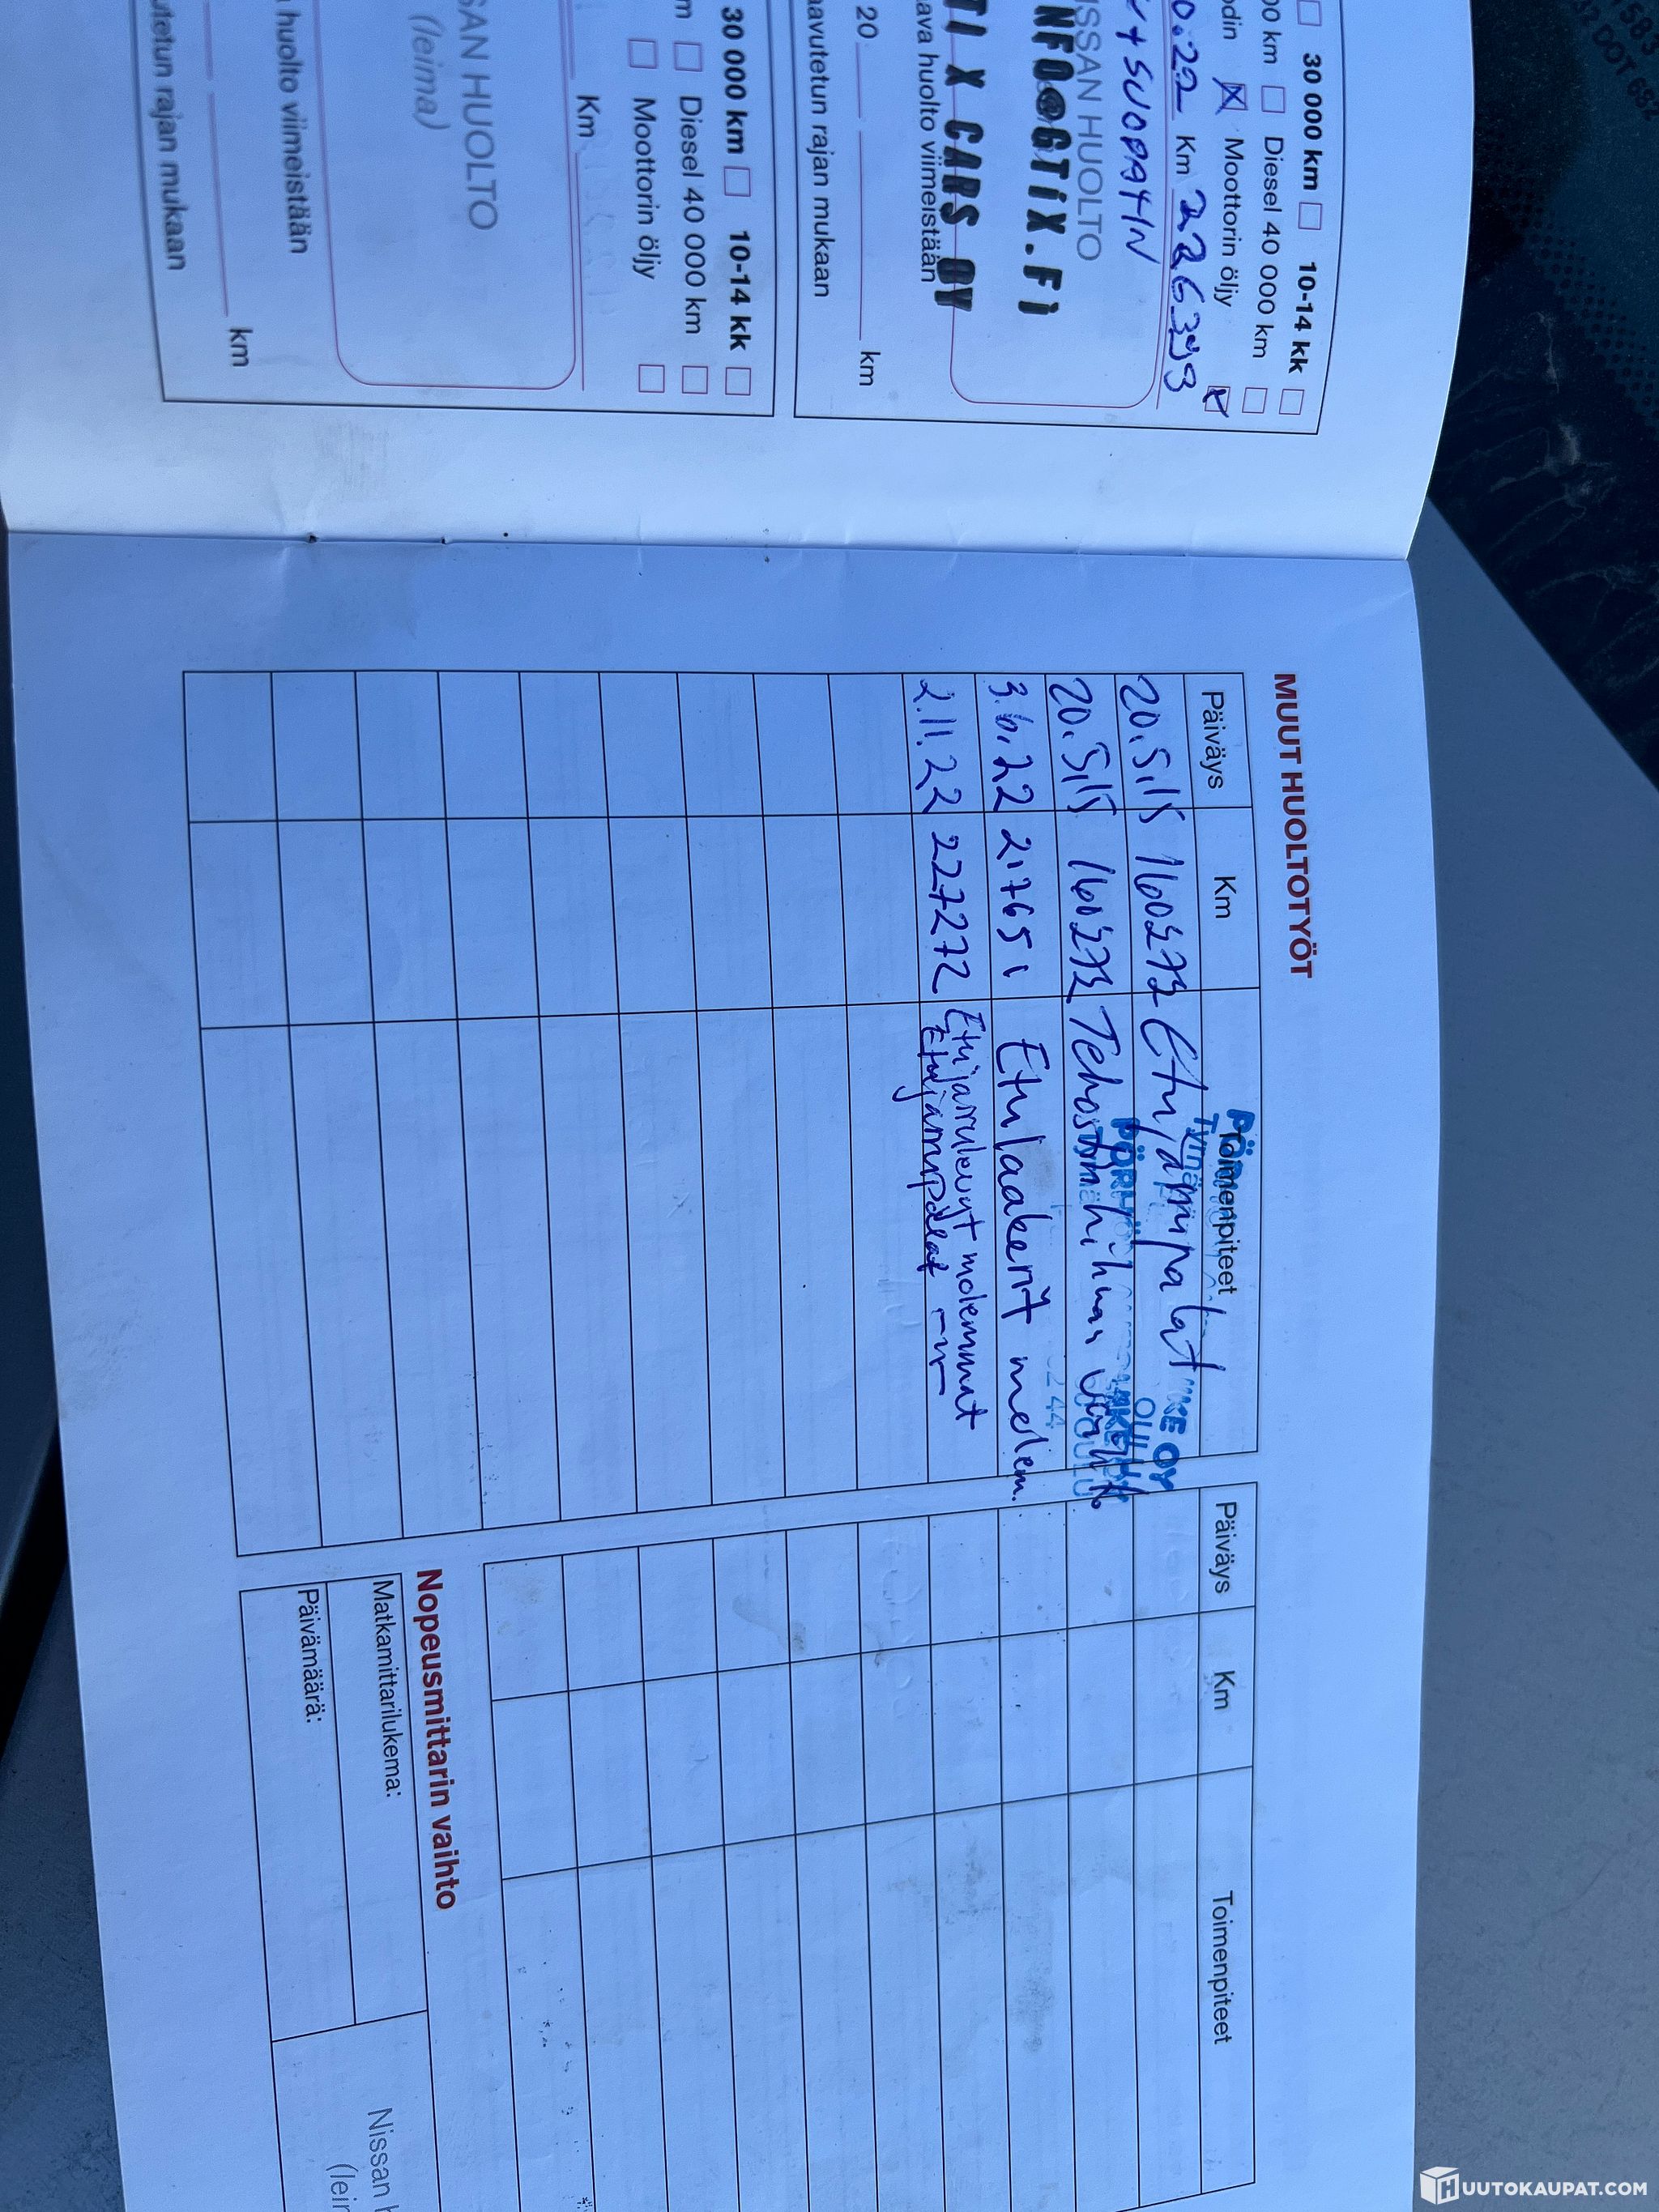 30 000 km 10-14 kk
00 km Diesel 40 000 km
Moottorin öljy
0.22 Km 226393
+ SUODATIN
ISSAN HUOLTO
NFO@GTIX.FI
TI X CARS OY
ava huolto viimeistään
aavutetun rajan mukaan
20 km
30 000 km 10-14 kk
m Diesel 40 000 km
Moottorin öljy
Km
SAN HUOLTO
(leima)
huolto viimeistään
utetun rajan mukaan
km
MUUT HUOLTOTYÖT
Päiväys Km Toimenpiteet
20.5.15 160573 Etujarrupalat
20.5.15 160573 Tehostinhihnan vaihto
3.6.22 217651 Etulaakerit molem.
2.11.22 227272 Etujarrulevyt molemmat
Etujarrupalat -"-
Päiväys Km Toimenpiteet
Nopeusmittarin vaihto
Matkamittarilukema:
Päivämäärä:
Nissan
HUUTOKAUPAT.COM